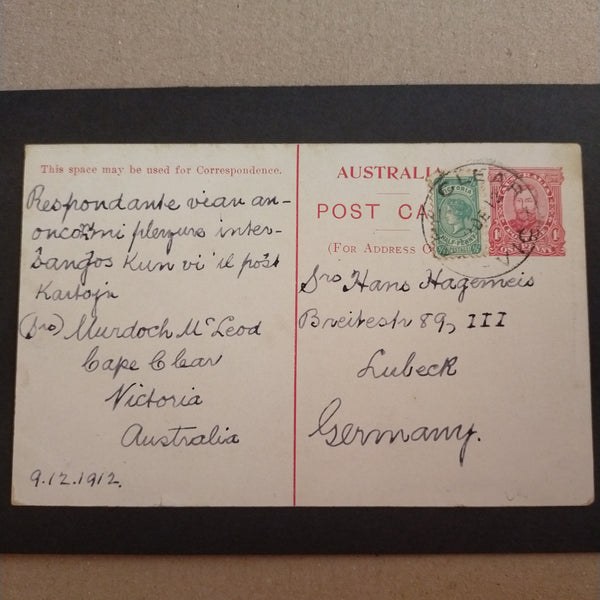 This space may be used for Correspondence.
Respondante vian an-
oncon mi plezure inter-
ŝanĝos Kun vi il post
Kartojn
(Sro) Murdoch McLeod
Cape Clear
Victoria
Australia
9.12.1912.
AUSTRALIA
POST CA
(FOR ADDRESS O
Sro Hans Hagemeis
Breitestr 89, III
Lubeck
Germany.
CAPE CLEAR
VIC